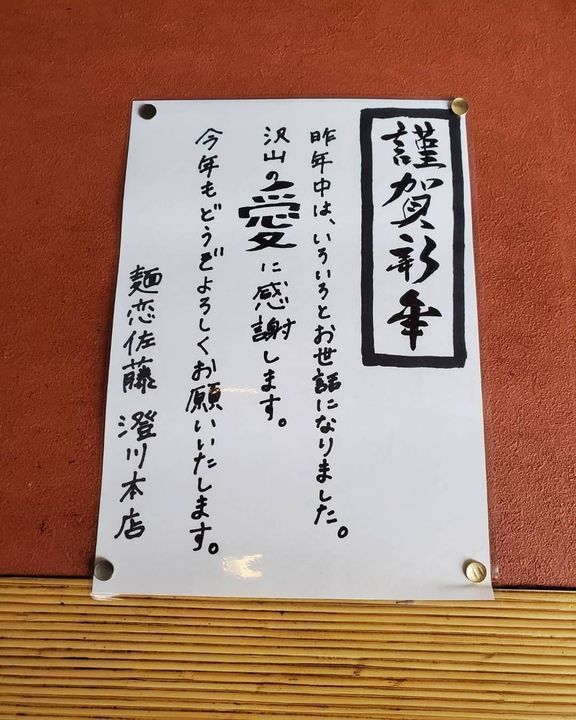 謹賀新年
昨年中は、いろいろとお世話になりました。
沢山の愛に感謝します。
今年もどうぞよろしくお願いいたします。
麺恋佐藤 澄川本店